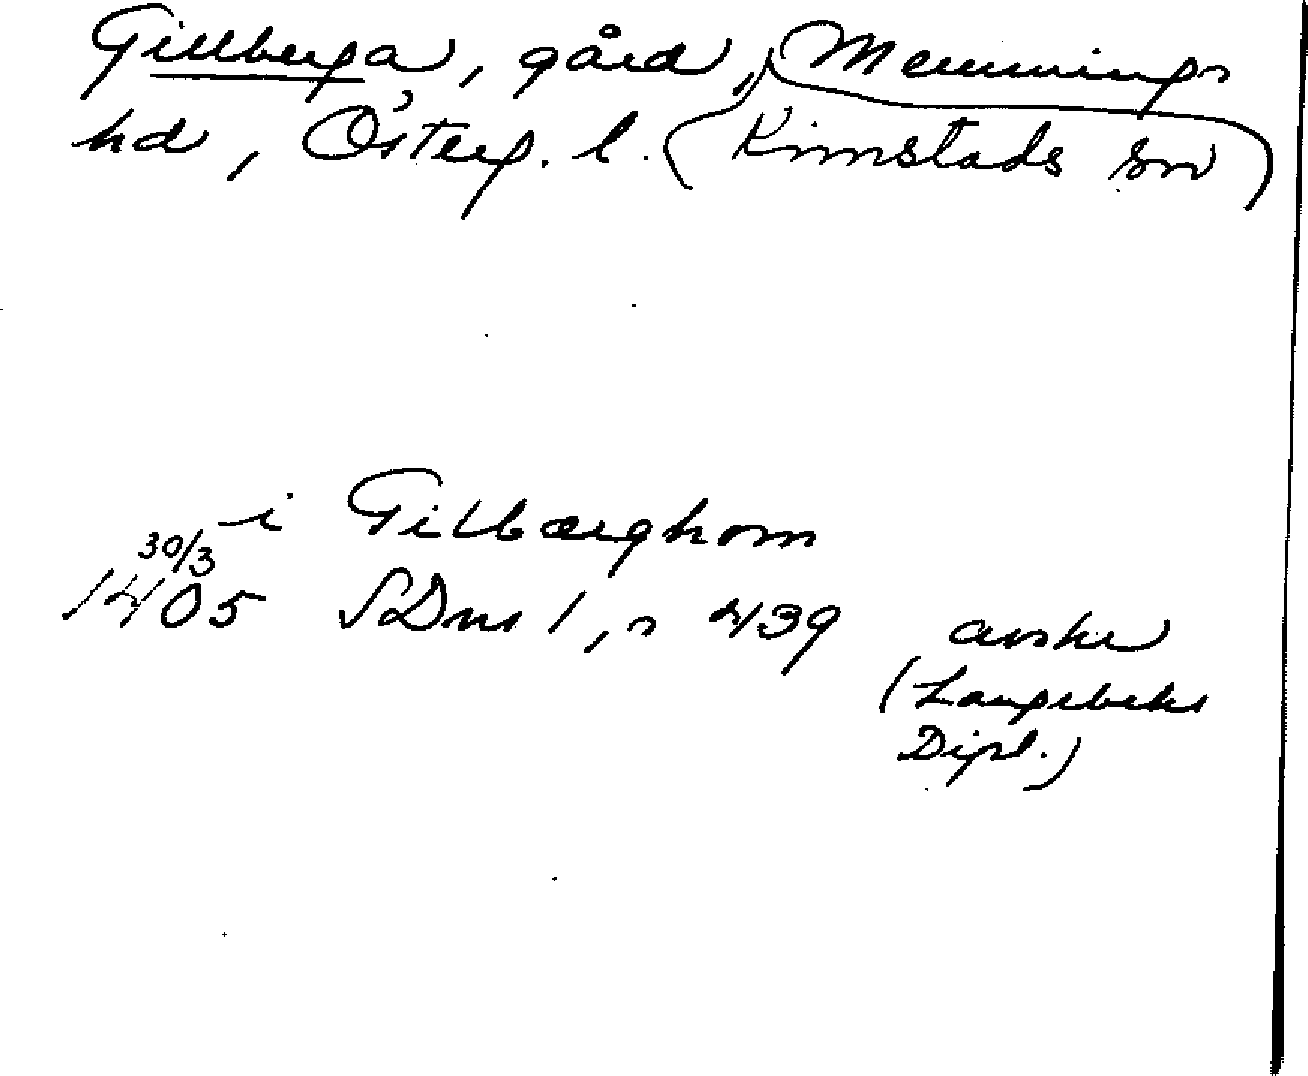 Gillberga, gård, Memmings
hd, Österg. l. (Kimstads sn)
i Gilbærghom
30/3
1405 SDns 1, s 439 avskr
(Langebeks
Dipl.)